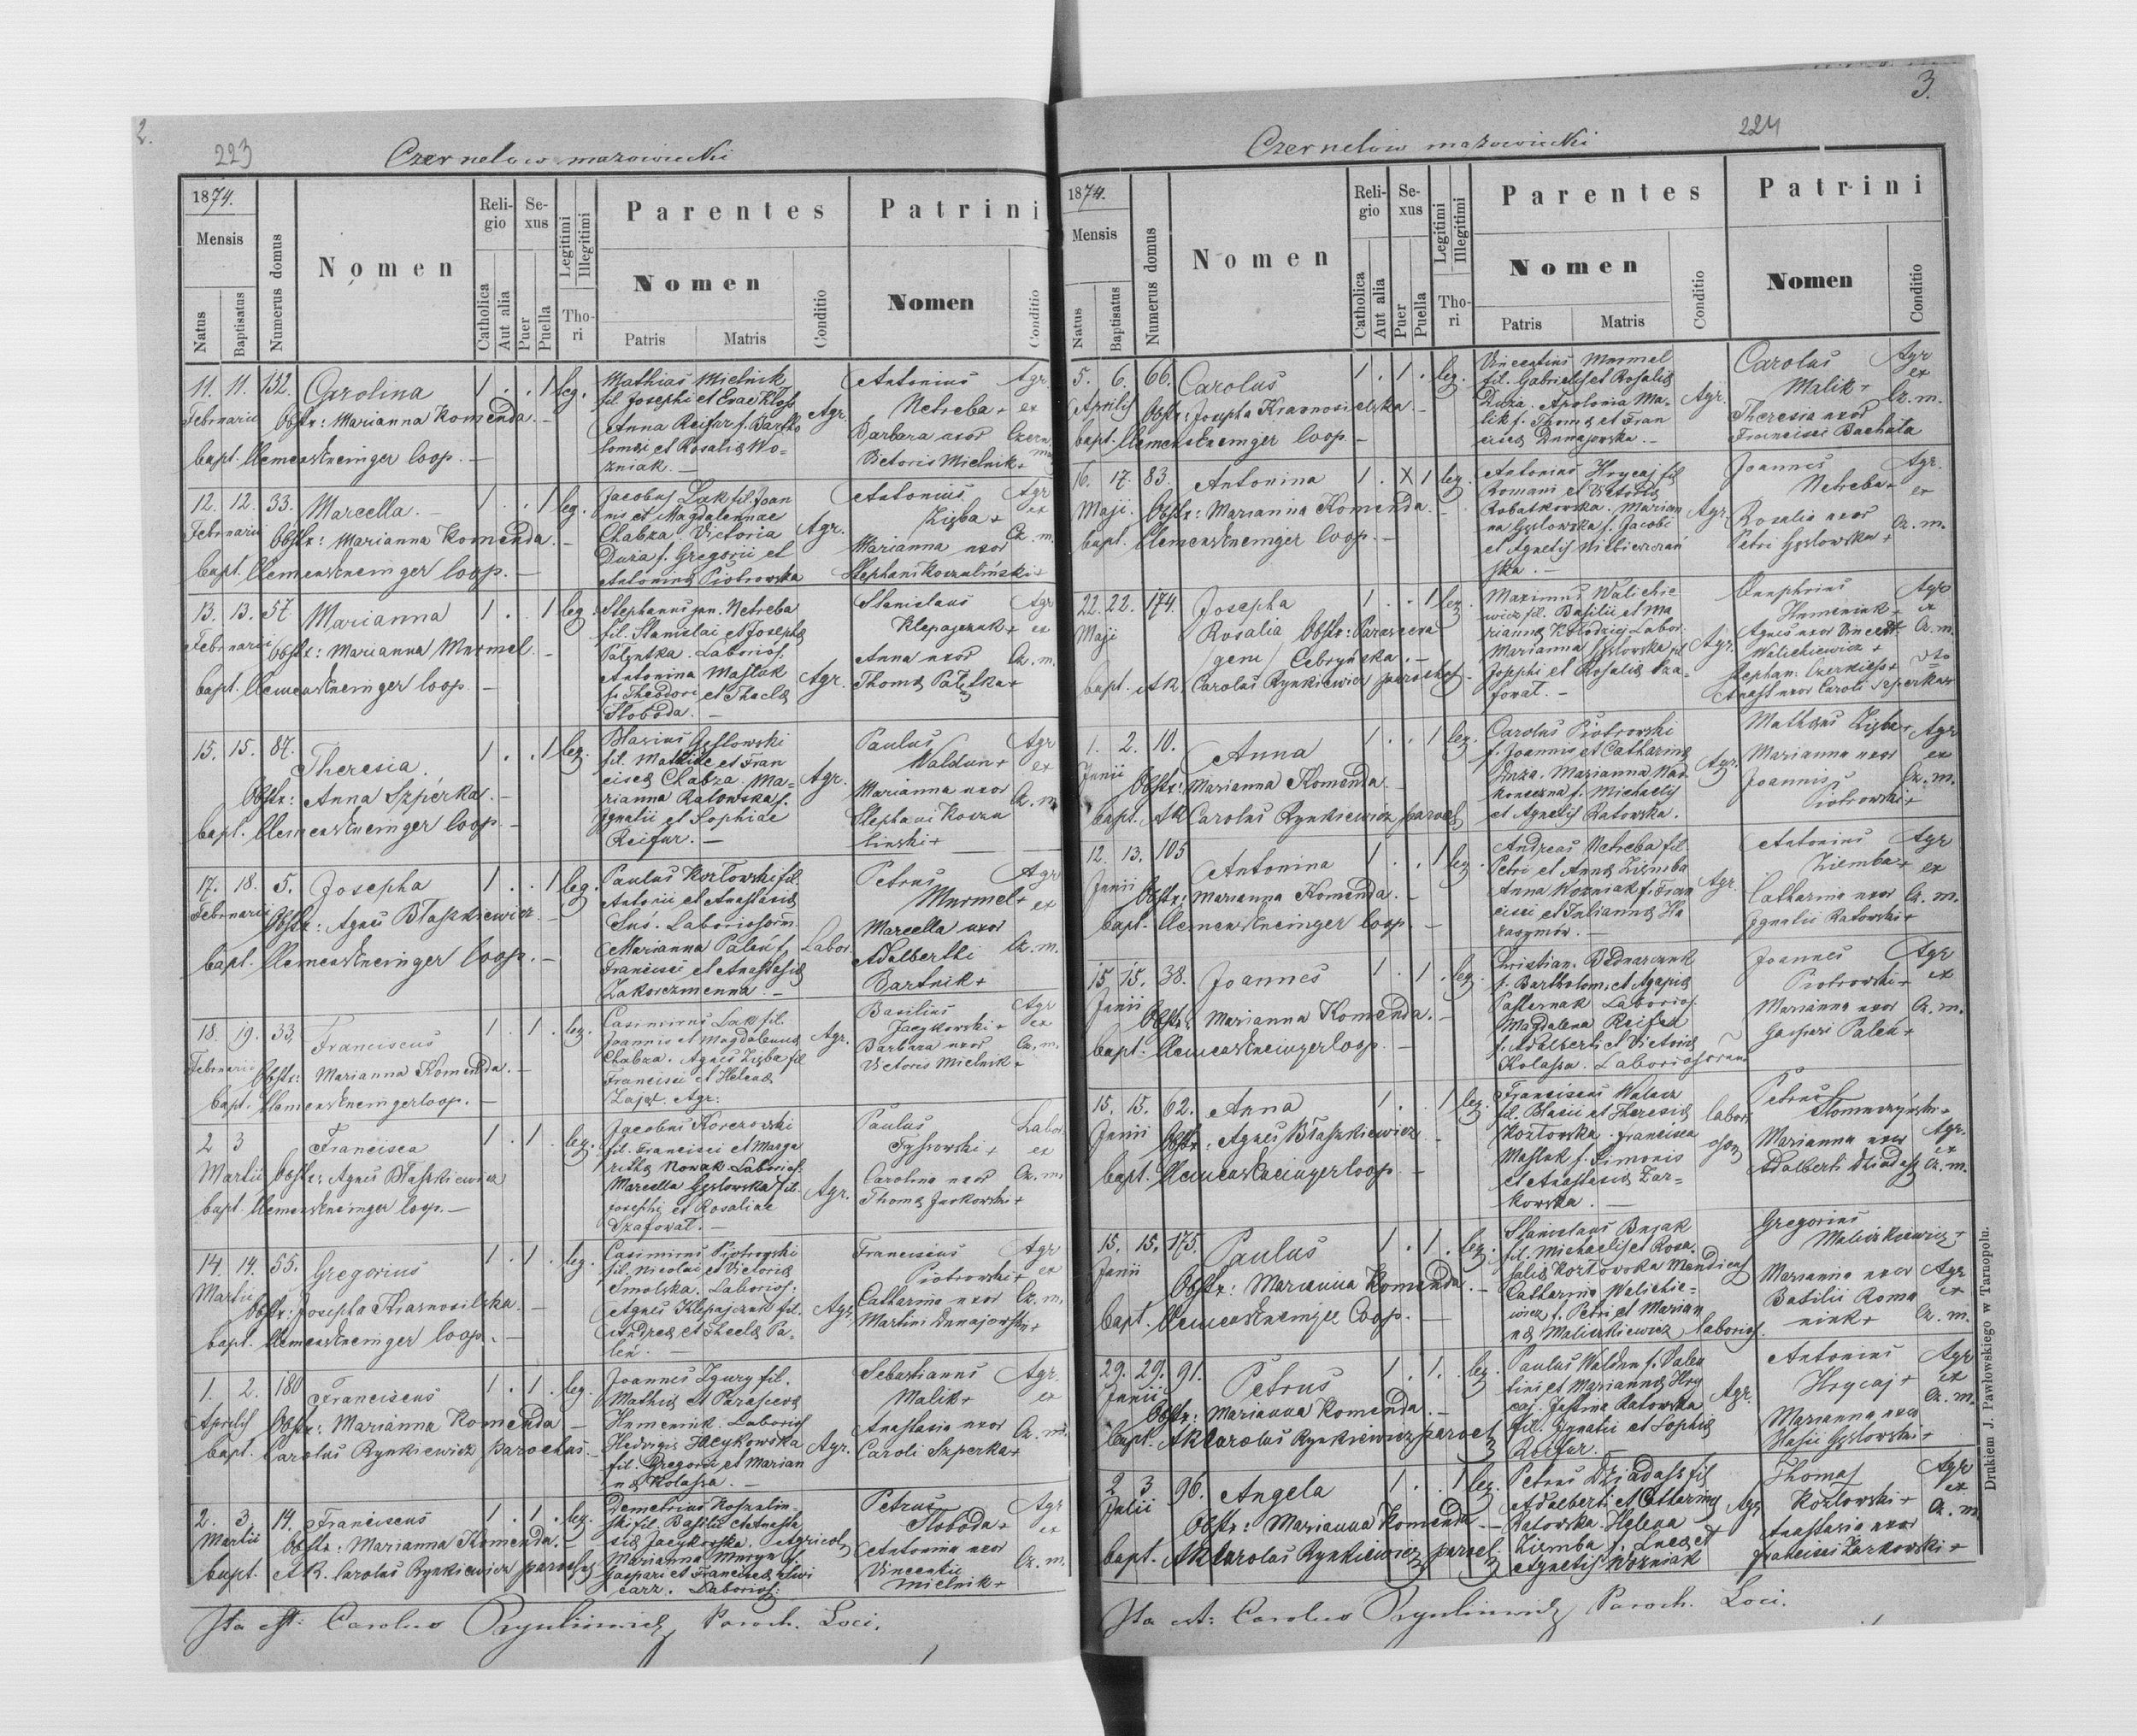 2.
223
Czernelow mazowiecki
1874.
Mensis
Natus
Baptisatus
Numerus domus
Nomen
Religio
Catholica
Aut alia
Sexus
Puer
Puella
Legitimi
Illegitimi
Thori
Parentes
Nomen
Patris
Matris
Conditio
Patrini
Nomen
Conditio
11. 11. 132. Carolina 1 . . 1 leg.
Februarii Obstx: Marianna Komenda. —
bapt. Clemens Eneinger Coop. —
Mathias Mielnik
fil. Josephi et Evae
Anna Reifur f. Bartho
lomei et Rosaliae Wo=
zniak. —
Agr.
Antonius
Netreba +
Barbara uxor
Victoris Mielnik +
Agr.
ex
12. 12. 33. Marcella. — 1 . . 1 leg.
Februarii Obstx: Marianna Komenda. —
bapt. Clemens Eneinger Coop. —
Jacobus Lak fil. Joan
nis et Magdalennae
Chabza. Victoria
Duża f. Gregorii et
Antoninae Piotrowska
Agr.
Antonius
Zięba +
Marianna uxor
Stephani Koszuliński +
Agr
ex
Cz. m.
13. 13. 57. Marianna 1 . . 1 leg.
Februarii Obstx: Marianna Murmel. —
bapt. Clemens Eneinger Coop. —
Stephanus jun. Netreba
fil. Stanislai et Josephae
Laborios.
Antonina Maślak
f. Theodori et Theclae
Słoboda. —
Agr.
Stanislaus
Klepajczuk +
Anna uxor
Thomae
Agr
ex
Cz. m.
15. 15. 87. Theresia. 1 . . 1 leg.
Obstx: Anna Szperka. —
bapt. Clemens Eneinger Coop. —
Blasius Gęslowski
fil. et Fran
ciscae Chabza. Ma=
rianna Ratowska f.
Ignatii et Sophiae
Reifur. —
Agr.
Paulus
Waldun +
Marianna uxor
Stephani Koszu
linski +
Agr
ex
Cz. m.
17. 18. 5. Josepha 1 . . 1 leg.
Februarii Obstx: Agnes Błaszkiewicz. —
bapt. Clemens Eneinger Coop. —
Paulus Kozłowski fil.
Antonii et Anastasiae
Marianna Paleń f.
Francisci et Anastasiae
Zakorczmenna. —
Labor.
Petrus
Murmel +
Marcella uxor
Adalberti
Bartnik +
Agr
ex
Cz. m.
18. 19. 33. Franciscus 1 . 1 . leg.
Februarii Obstx: Marianna Komenda. —
bapt. Clemens Eneinger Coop. —
Casimirus Lak fil.
Joannis et Magdalenae
Chabza. Agnes Zięba fil
Francisci et Helenae
Zając. Agr:
Agr.
Basilius
Jacykowski +
Barbara uxor
Victoris Mielnik +
Agr
ex
Cz. m.
2 3 Francisca 1 . 1 . leg.
Martii Obstx: Agnes Błaszkiewicz
bapt. Clemens Eneinger Coop. —
Jacobus Korczowski
fil. Francisci et Marga
rithae Nowak Laborios.
Marcella Gęslowska fil.
Josephi et Rosaliae
Szafował. —
Agr.
Paulus
Carolina uxor
Thomae Jackowski +
Labor.
ex
Cz. m.
14. 14. 55. Gregorius 1 . 1 . leg.
Martii Obstx: Josepha Krasnosielska. —
bapt. Clemens Eneinger Coop. —
Casimirus Piotrowski
fil. Nicolai et Victoriae
Smolska. Laborios:
Agnes Klepajczuk fil.
Andreae et Theclae Pa=
leń. —
Agr.
Franciscus
Piotrowski +
Catharina uxor
Martini Dunajowski +
Agr
ex
Cz. m.
1. 2. 180 Franciscus 1 . 1 . leg.
Aprilis Obstx: Marianna Komenda —
bapt. Carolus Rynkiewicz parochus. —
Joannes Zgury fil.
Mathiae et Parascevae
Humeniuk. Laborios
Hedvigis Jacykowska
fil. Gregorii et Marian
nae Kolassa. —
Agr.
Sebastianus
Malik +
Anastasia uxor
Caroli Szperka +
Agr.
ex
Cz. m.
2. 3. 14. Franciscus 1 . 1 . leg.
Martii Obstx: Marianna Komenda. —
bapt. AR. Carolus Rynkiewicz parochus
Demetrius Koszulin=
ski fil. Basilii et Anasta
siae Jacykowska. Agricol
Marianna Muryn f.
Gaspari et Franciscae
carz. Laborios:
Petrus
Słoboda +
Antonina uxor
Vincentii
Mielnik +
Agr
ex
Cz. m.
Ita est: Carolus Rynkiewicz Paroch. Loci.
3.
224
Czernelow mazowiecki
1874.
Mensis
Natus
Baptisatus
Numerus domus
Nomen
Religio
Catholica
Aut alia
Sexus
Puer
Puella
Legitimi
Illegitimi
Thori
Parentes
Nomen
Patris
Matris
Conditio
Patrini
Nomen
Conditio
5. 6. 66. Carolus 1 . 1 . leg.
Aprilis Obstx: Josepha Krasnosielska —
bapt. Clemens Eneinger Coop —
Vincentius Murmel
fil. Gabrielis et Rosaliae
Duża. Apolonia Ma=
lik f. Thomae et Fran
ciscae Dunajowska. —
Agr.
Carolus
Malik +
Theresia uxor
Francisci Bachata
Agr
ex
Cz. m.
16. 17. 83. Antonina 1 . X 1 leg.
Maji. Obstx: Marianna Komenda. —
bapt. Clemens Eneinger Coop. —
Antonius Hrycaj fil
Romani et Victoriae
Robatkowska. Marian
na Gęslowska f. Jacobi
et Agnetis
ska. —
Agr.
Joannes
Netreba +
Rosalia uxor
Petri Gęslowski +
Agr.
ex
Cz. m.
22. 22. 174. Josepha 1 . . 1 leg.
Maji Rosalia Obstx: Parasceva
gem Cebryńska. —
bapt. AR. Carolus Rynkiewicz parochus. —
Maximus Walichie
wicz fil. Basilii et Ma
riannae Kołodziej Labor.
Marianna Gęslowska fil
Josephi et Rosaliae Sza=
fował. —
Agr.
Onuphrius
Humeniuk +
Agnes uxor Vincent.
Walichiewicz +
Stephan. Czerkies +
Anast uxor Caroli Szperka +
Agr
ex
Cz. m.
1. 2. 10. Anna 1 . . 1 leg.
Junii Obstx: Marianna Komenda. —
bapt. AR Carolus Rynkiewicz paroch
Carolus Piotrowski
f. Joannis et Catharinae
Duża. Marianna Nad
koneczna f. Michaelis
et Agnetis Ratowska.
Agr.
Mathaeus Zięba +
Marianna uxor
Joannis
Piotrowski +
Agr
ex
Cz. m.
12. 13. 105 Antonina 1 . . 1 leg.
Junii Obstx: Marianna Komenda. —
bapt. Clemens Eneinger Coop. —
Andreas Netreba fil
Petri et Annae Ziemba
Anna Wozniak f. Fran
cisci et Juliannae Ha
rasymów. —
Agr.
Antonius
Ziemba +
Catharina uxor
Ignatii Ratowski +
Agr
ex
Cz. m.
15 15. 38. Joannes 1 . 1 . leg.
Junii Obstx: Marianna Komenda. —
bapt. Clemens Eneinger Coop. —
Christian. Bednarczuk
f. Bartholom. et Agapiae
Pasternak Laborios.
Magdalena Reifur
f. Adalberti et Victoriae
Kolassa. Laboriosorum
Joannes
Piotrowski +
Marianna uxor
Gaspari Paleń +
Agr
ex
Cz. m.
15. 15. 62. Anna 1 . . 1 leg.
Junii Obstx: Agnes Błaszkiewicz —
bapt. Clemens Eneinger Coop. —
Franciscus Walacz
fil. Blasii et Theresiae
Kozłowska. Francisca
Maślak f. Simonis
et Anastasiae Zar=
kowska. —
labori
osor
Petrus
Słomczyński +
Marianna uxor
Adalberti Dziadas
Agr.
ex
Cz. m.
15. 15. 175. Paulus 1 . 1 . leg.
Junii Obstx: Marianna Komenda. —
bapt. Clemens Eneinger Coop. —
Stanislaus Bujak
fil. Michaelis et Rosa
saliae Kozłowska Mendicus
Catharina Walichie=
wicz f. Petri et Marian
nae Maliszkiewicz laborios.
Gregorius
Maliszkiewicz +
Marianna uxor
Basilii Roma
niuk +
Agr
ex
Cz. m.
29. 29. 91. Petrus 1 . 1 . leg.
Junii Obstx: Marianna Komenda. —
bapt. AR Carolus Rynkiewicz paroch
Paulus Waldun f. Valen
tini et Mariannae Hry
caj. Justina Ratowska
fil. Ignatii et Sophiae
Reifur. —
Agr.
Antonius
Hrycaj +
Marianna uxor
Blasii Gęslowski +
Agr
ex
Cz. m.
2 3 96. Angela 1 . . 1 leg.
Julii Obstx: Marianna Komenda —
bapt. AR Carolus Rynkiewicz paroch
Petrus Dziadas fil
Adalberti et Catharinae
Ratowska. Helena
Ziemba f. Lucae et
Agnetis Wozniak
Agr
Thomas
Kozłowski +
Anastasia uxor
Francisci Zarkowski +
Agr
ex
Cz. m
Ita est: Carolus Rynkiewicz Paroch. Loci.
Drukiem J. Pawłowskiego w Tarnopolu.